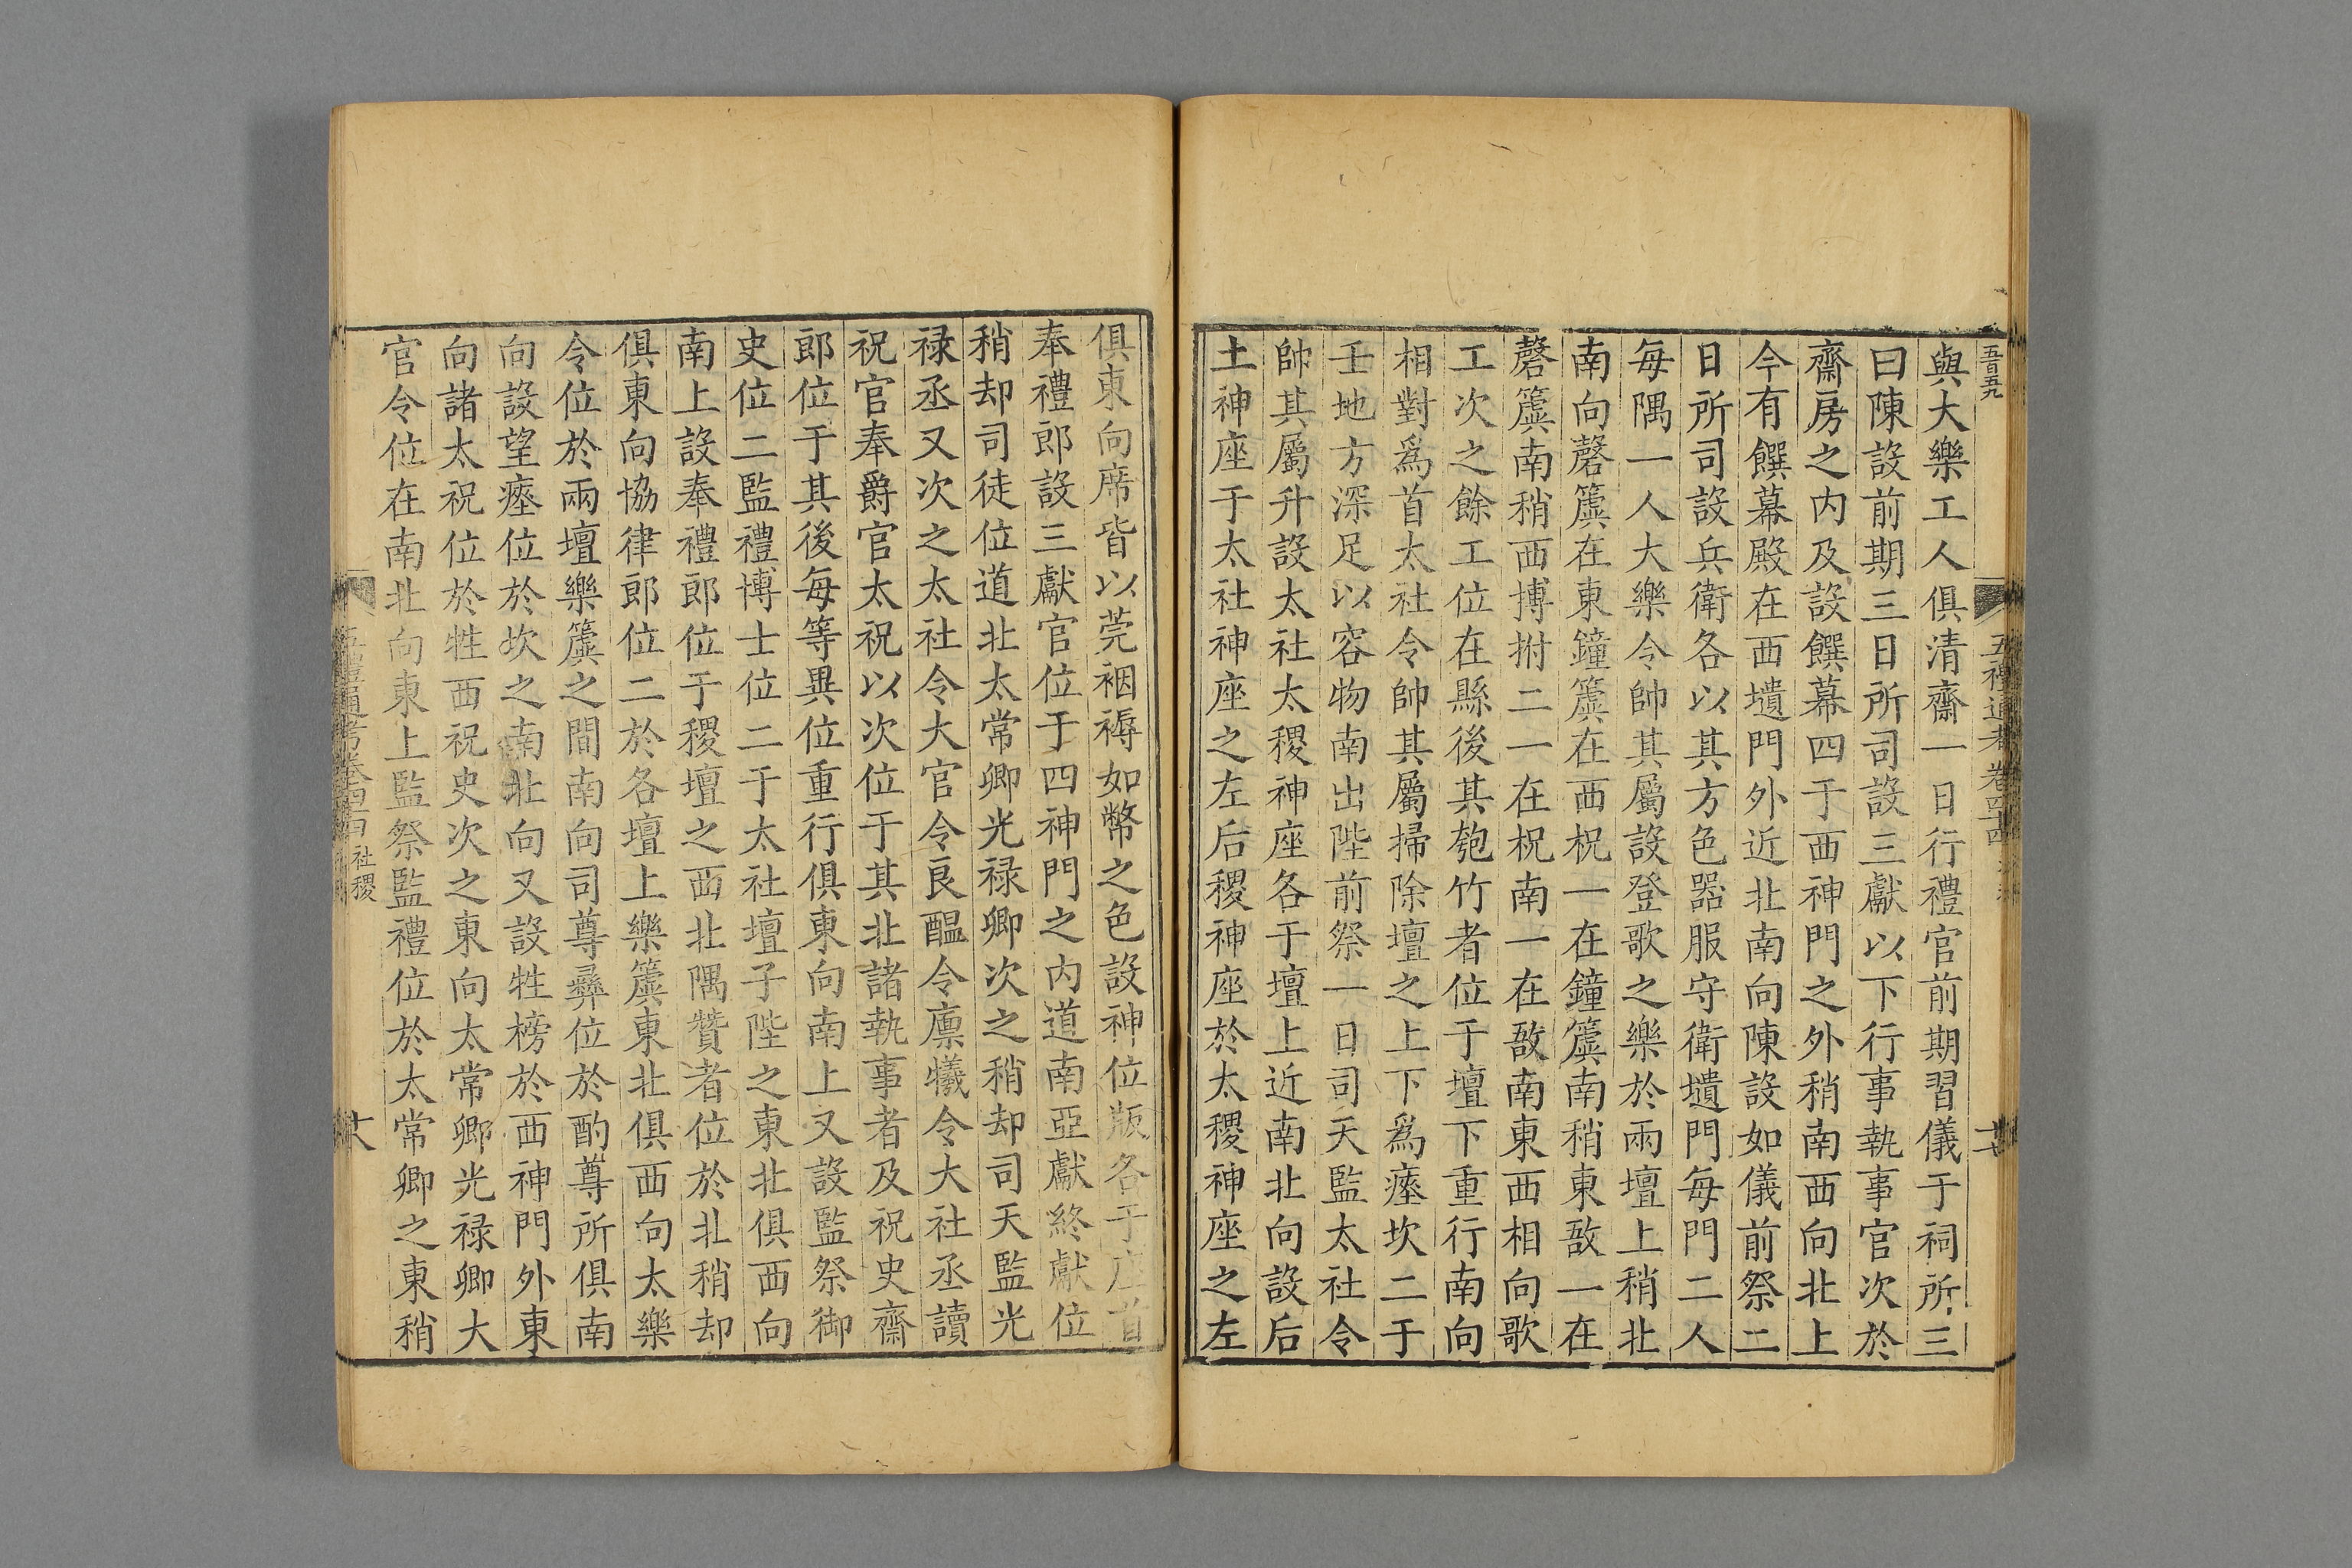 五百五九
五禮通考卷四十四
十七
與大樂工人俱清齋一日行禮官前期習儀于祠所三
曰陳設前期三日所司設三獻以下行事執事官次於
齋房之内及設饌幕四于西神門之外稍南西向北上
今有饌幕殿在西壝門外近北南向陳設如儀前祭二
日所司設兵衛各以其方色器服守衛壝門每門二人
每隅一人大樂令帥其屬設登歌之樂於兩壇上稍北
南向磬簴在東鐘簴在西柷一在鐘簴南稍東敔一在
磬簴南稍西搏拊二一在柷南一在敔南東西相向歌
工次之餘工位在縣後其匏竹者位于壇下重行南向
相對爲首太社令帥其屬掃除壇之上下爲瘞坎二于
壬地方深足以容物南出陛前祭一日司天監太社令
帥其屬升設太社太稷神座各于壇上近南北向設后
土神座于太社神座之左后稷神座於太稷神座之左
俱東向席皆以莞裀褥如幣之色設神位版各于座首
奉禮郎設三獻官位于四神門之内道南亞獻終獻位
稍却司徒位道北太常卿光禄卿次之稍却司天監光
禄丞又次之太社令大官令良醖令廪犧令大社丞讀
祝官奉爵官太祝以次位于其北諸執事者及祝史齋
郎位于其後每等異位重行俱東向南上又設監祭御
史位二監禮博士位二于太社壇子陛之東北俱西向
南上設奉禮郎位于稷壇之西北隅贊者位於北稍却
俱東向協律郎位二於各壇上樂簴東北俱西向太樂
令位於兩壇樂簴之間南向司尊彝位於酌尊所俱南
向設望瘞位於坎之南北向又設牲榜於西神門外東
向諸太祝位於牲西祝史次之東向太常卿光禄卿大
官令位在南北向東上監祭監禮位於太常卿之東稍
五禮通考卷四十四
社稷
十八